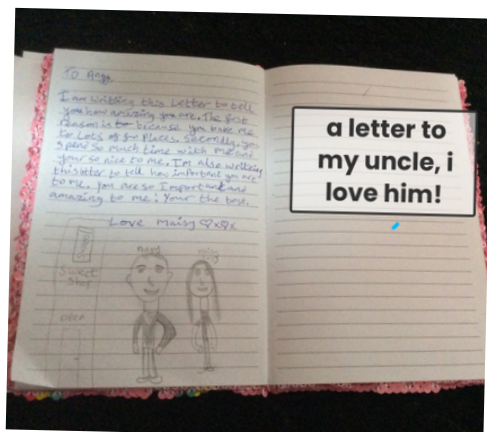 To Angy,
I am writing this Letter to tell
you how amazing you are. The first
reason is because you take me
to Lots of fun Places. Secondly, you
spend so much time with me and
your so nice to me. I'm also writing
this letter to tell how important you are
to me. you are so Important and
amazing to me! Your the best.
Love Maisy ♡x♡x
Sweet
Shop
open
a letter to
my uncle, i
love him!